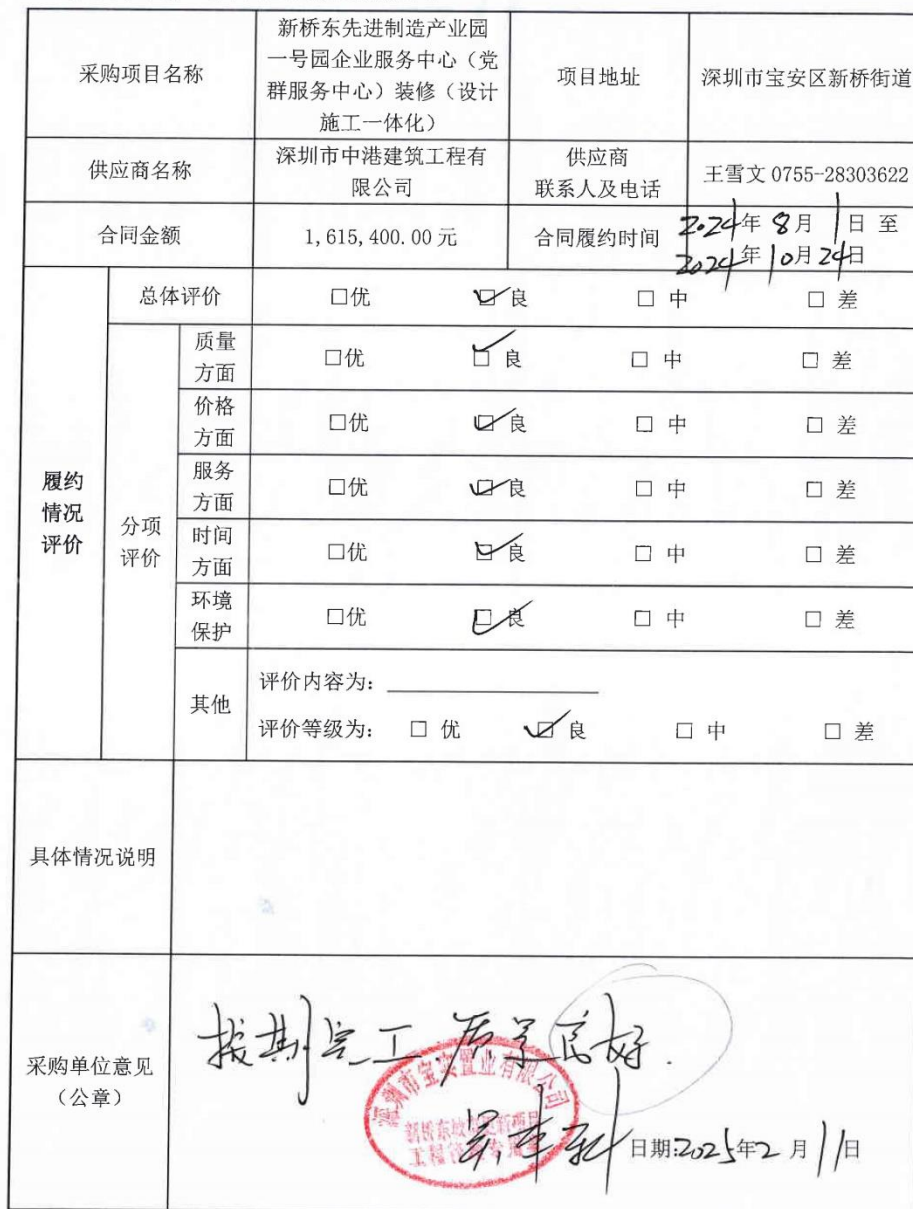 采购项目名称
新桥东先进制造产业园
一号园企业服务中心（党
群服务中心）装修（设计
施工一体化）
项目地址
深圳市宝安区新桥街道
供应商名称
深圳市中港建筑工程有
限公司
供应商
联系人及电话
王雪文 0755-28303622
合同金额
1,615,400.00 元
合同履约时间
2024年 8月 1日 至
2024年 10月24日
履约
情况
评价
总体评价
□优 ☑良 □ 中 □ 差
分项
评价
质量
方面
□优 ☑ 良 □ 中 □ 差
价格
方面
□优 ☑良 □ 中 □ 差
服务
方面
□优 ☑良 □ 中 □ 差
时间
方面
□优 ☑良 □ 中 □ 差
环境
保护
□优 ☑良 □ 中 □ 差
其他
评价内容为：
评价等级为： □ 优 ☑良 □ 中 □ 差
具体情况说明
采购单位意见
（公章）
按期完工.质量良好.
深圳市宝安置业有限公司
新桥东城市更新项目
工程管理专用章
日期:2025年2 月 11日